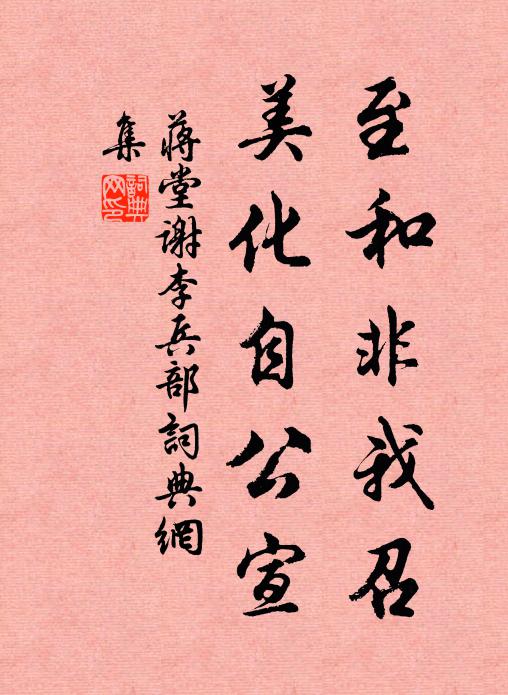 至和非我召
美化自公宣
蔣堂謝李兵部詞典網
集
詞典
网印